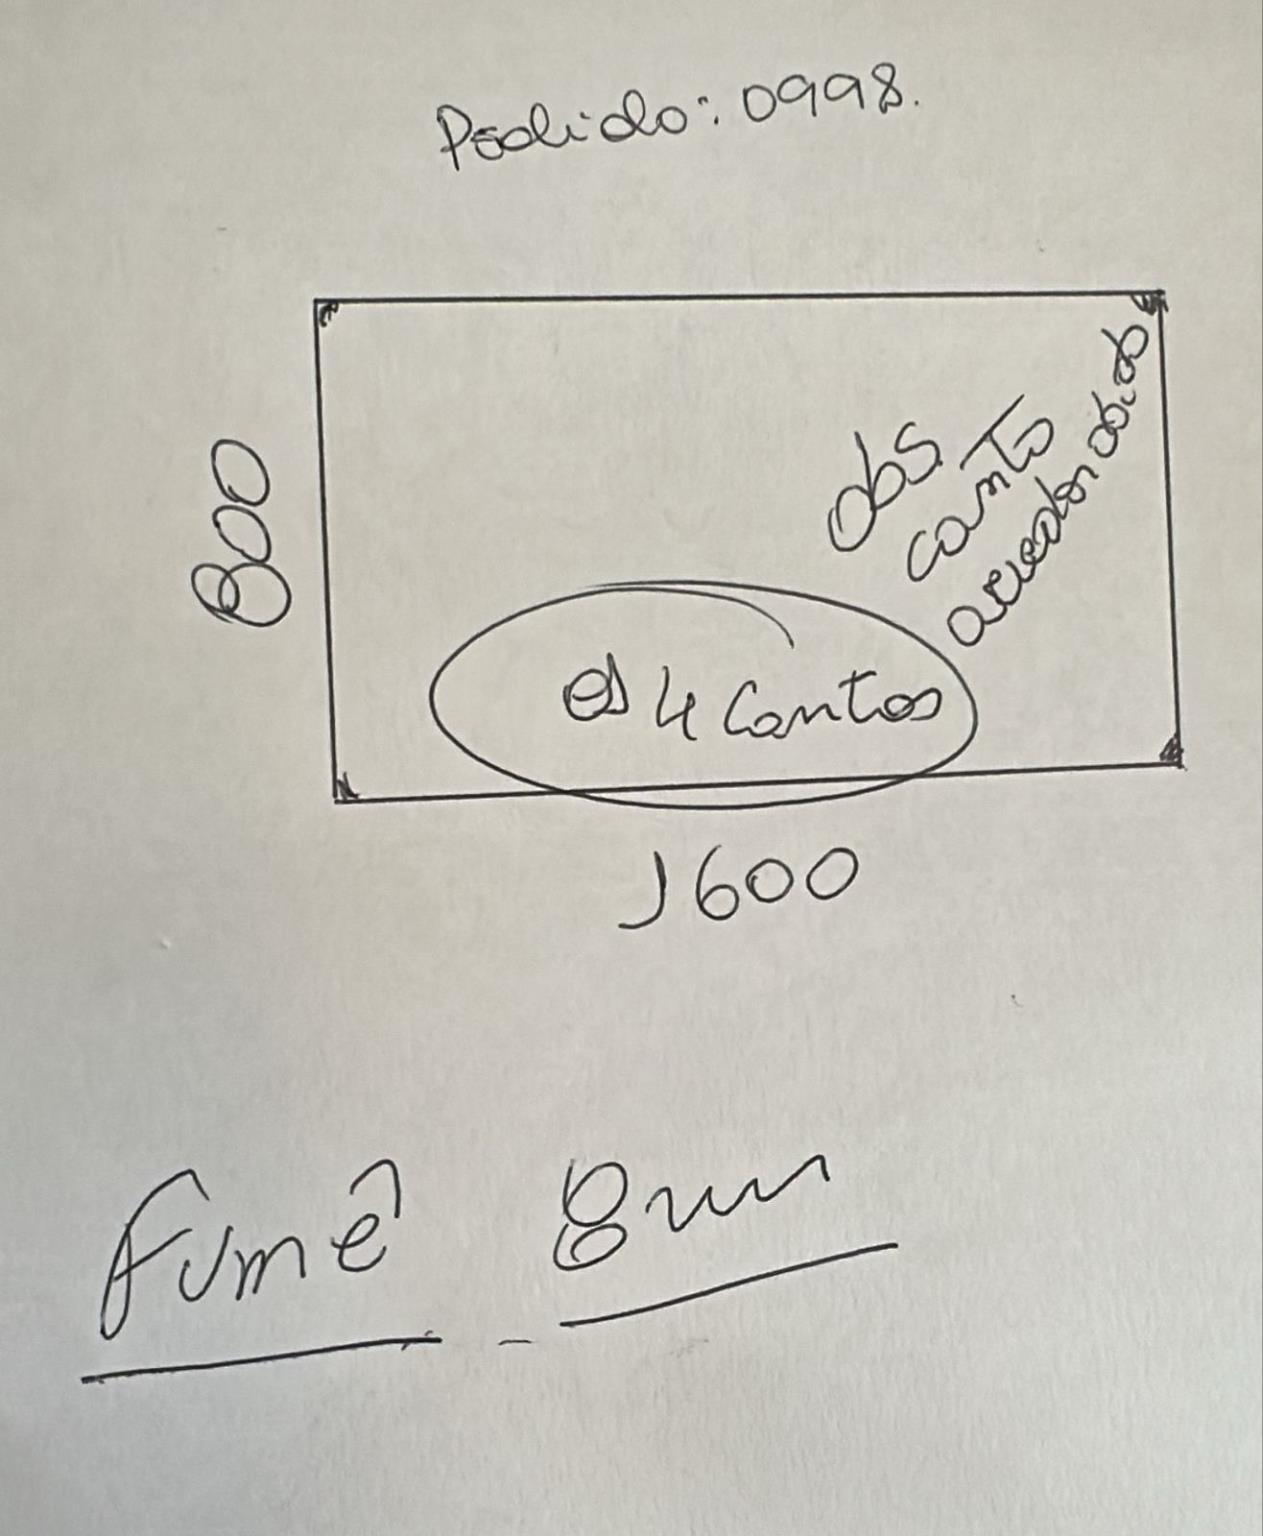 Pedido: 0998.
800
obs
canto
arredondado
os 4 Cantos
1600
Fumê 8mm